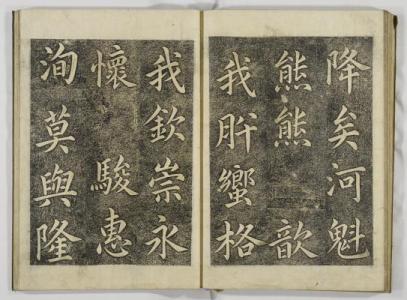 降矣河魁
熊熊歆
我肸蠁格
我欽崇永
懷駿惠
洵莫與隆